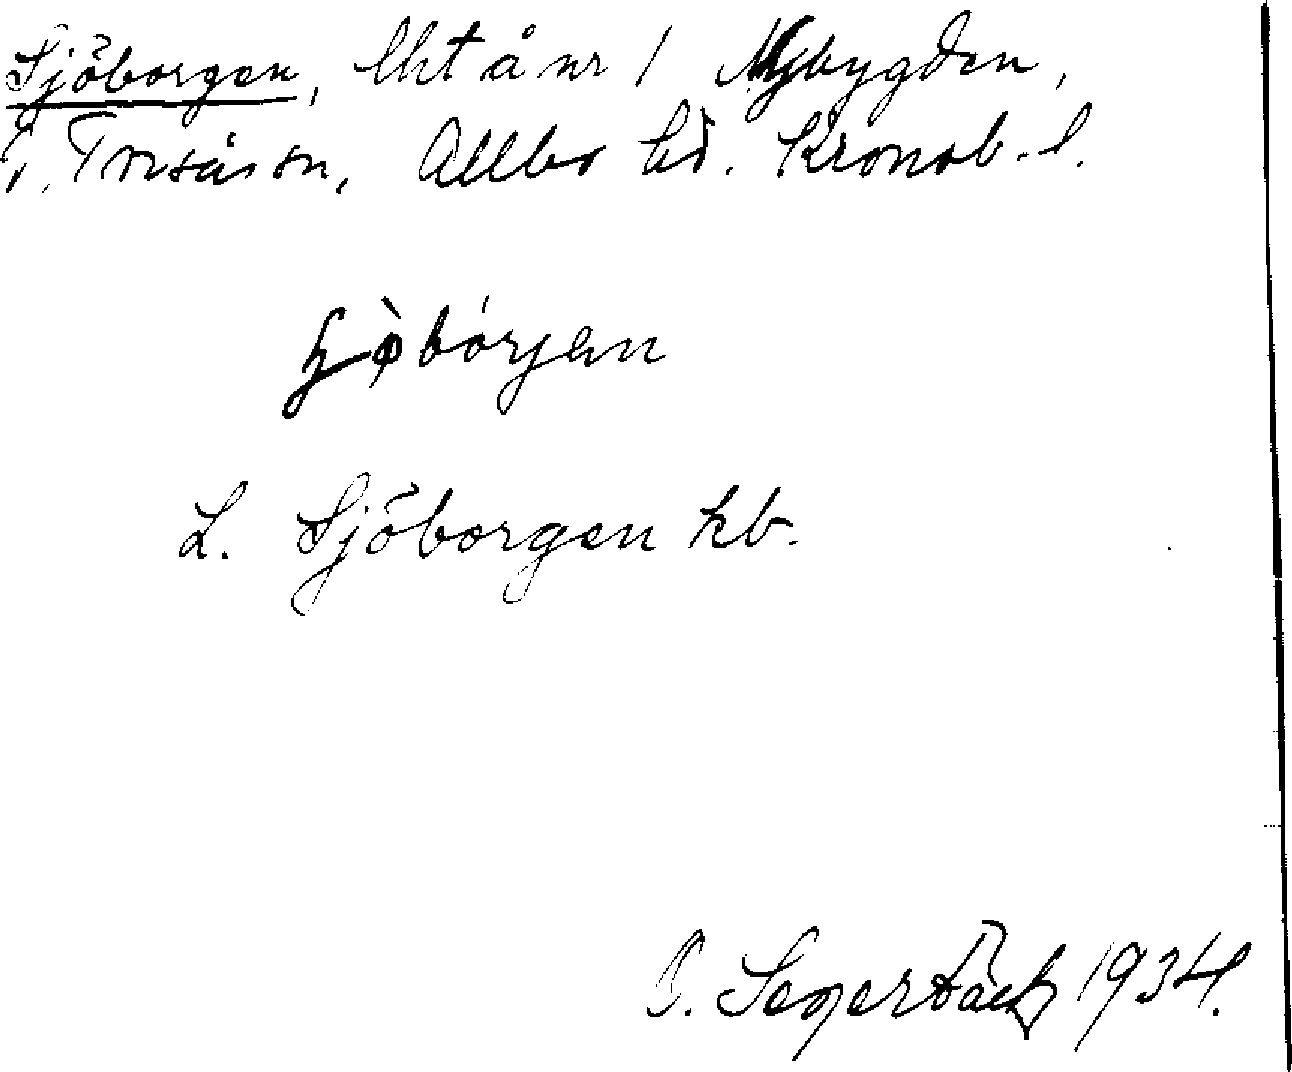 Sjöborgen, lht å nr 1 Nybygden,
V. Torsås sn, Allbo hd. Kronob. l.
ɧø̀bórjen
L. Sjöborgen kb.
O. Segerbäck 1934.